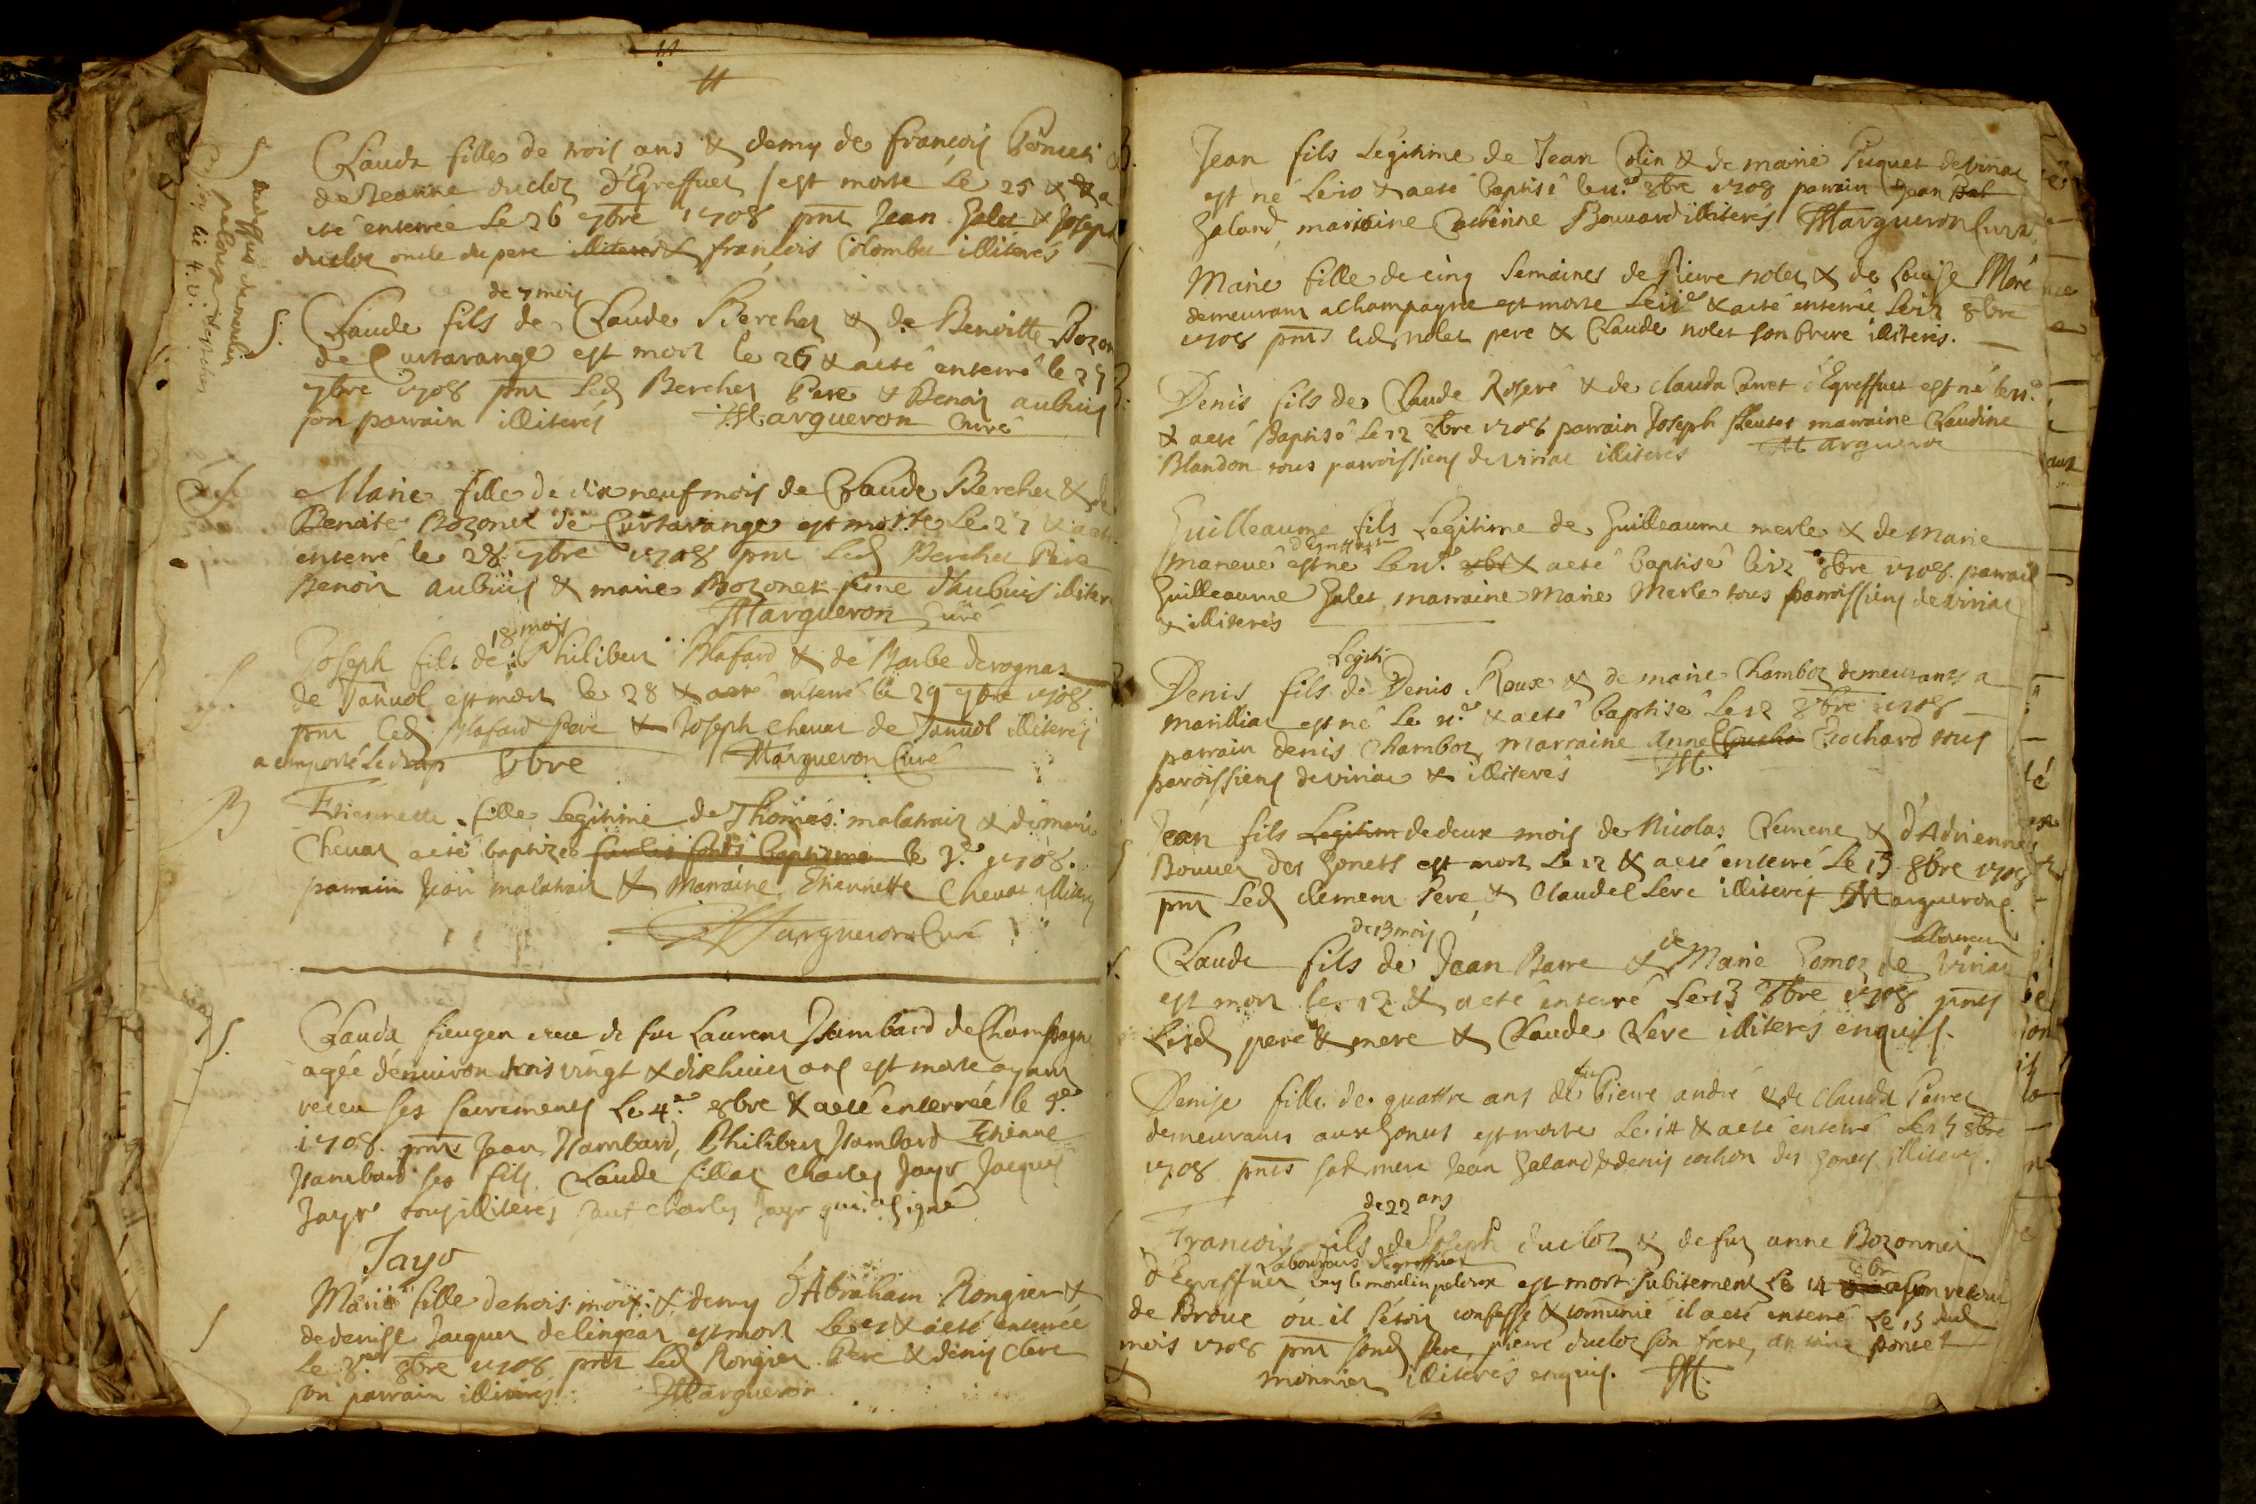 Clauda fille de trois ans & demy de françois Poncet &
de Jeanne ducloz d'Egreffuet est morte Le 25 & a
eté enterrée Le 26 7bre 1708 pnt Jean Galet & Joseph
ducloz oncle du pere illiterés & françois Colomber illiterés
de 7 mois
Claude fils de Claude Berchet & de Benoitte Bozon
de Curtarange est mort le 26 & a eté enterré le 27
7bre 1708 pnt Led Berchet Pere & Benoit aubuis
son parrain illiterés Margueron Curé
Marie fille de dix neuf mois de Claude Berchet & de
Benoite Bozonet de Curtarange est morte Le 27 & a eté
enterré le 28 7bre 1708 pnt Led Berchet Pere
Benoit aubuis & marie Bozonet fme d'aubuis illiter
Margueron Curé
18 mois
Joseph fils de Philibert Blafard & de Barbe derognat
de Tanvol est mort le 28 & a eté enterré le 29 7bre 1708.
pnt Led Blafard Pere & Joseph Chevat de Tanvol illiterés
a emporté Le drap 8bre Margueron Curé
B Etiennette fille Legitime de Thomas malatrait & de marie
Chevat a eté baptizée sur les fonds baptisme le 3.e 1708.
parrain Jean malatrait & Marraine Etiennette Chevat illiter
Margueron Curé
S. Clauda fieugen veve de fut Laurent Isambard de Champagne
agée d'enuiron trois vingt & dixhuict ans est morte ayant
receu ses sacrements Le 4.e 8bre & a eté enterrée le 5.e
1708. pnts Jean Isambard, Philibert Isambard Etienne
Isambard ses fils Claude fillat Charles Jayr Jacques
Jayr tous illiterés sauf Charles Jayr qui a signé
Jayr
S Marie fille de trois mois & demy d'Abraham Rongier &
de denise Jacquet de lingeat est mort Le 2 & a eté enterrée
Le 3.e 8bre 1708 pnt Led Rongier Pere & denis Clere
son parrain illiterés Margueron
Jean fils Legitime de Jean Colin & de marie Puquet de viriat
est né Le 10 & a eté baptisé le 11.e 8bre 1708 parrain Jean
Galand marraine Catherine Bouvard illiterés Margueron Curé
Marie fille de cinq semaines de Pierre nolet & de Louise Moré
demeurant a Champagne est morte Le 11e & a eté enterrée Le 12 8bre
1708 pnts led nolet pere & Claude nolet son frere illiterés.
Denis fils de Claude Roseré & de clauda Curet d'Egreffuet est né le 11.e
& a eté Baptisé Le 12 8bre 1708 parrain Joseph marraine Claudine
Blandon tous parroissiens de viriat illiterés Margueron
Guilleaume fils Legitime de Guilleaume merle & de marie
d'Egreffuet
Maneué est né Le 11.e 8bre & a eté baptisé le 12 8bre 1708. parrain
Guilleaume Galet, marraine Marie Merle tous parroissiens de viriat
& illiterés
Legiti
Denis fils de Denis Roux & de marie Chamboz demeurants a
marilliat est né Le 11.e & a eté baptisé Le 12 8bre 1708
parrain denis Chamboz, Marraine Anne Cochard tous
paroissiens de viriat & illiterés M.
Jean fils Legitim de deux mois de Nicolas Clement & d'Adrienne
Bouvet des Gonets est mort Le 12 & a eté enterré Le 13 8bre 1708
pnt Led clement Pere & Claude Clere illiterés Margueron
de 13 mois Laboureur
S. Claude fils de Jean Barre & de Marie Pomez de Viriat
est mort le 12 & a eté enterré Le 13 8bre 1708 pnts
Lesd pere & mere & Claude Clere illiterés enquis.
Denise fille de quattre ans de fut Pierre andré & de clauda Perret
demeurants aux Gonets est morte Le 14 & a eté enterré Le 15 8bre
1708 pnts sad mere Jean Galand & denis cochon des Gonets illiterés.
de 22 ans
Francois fils de Joseph ducloz & de fut anne Bozonnet
Laboureurs d'Egreffuet
d'Egreffuet est mort subitement Le 14 8br a son retour
de Broue ou il s'etoit confessé & communié il a eté enterré Le 15 dud
mois 1708 pnt sond Pere, pierre ducloz son frere, antoine poncet
monnier illiterés enquis. M.